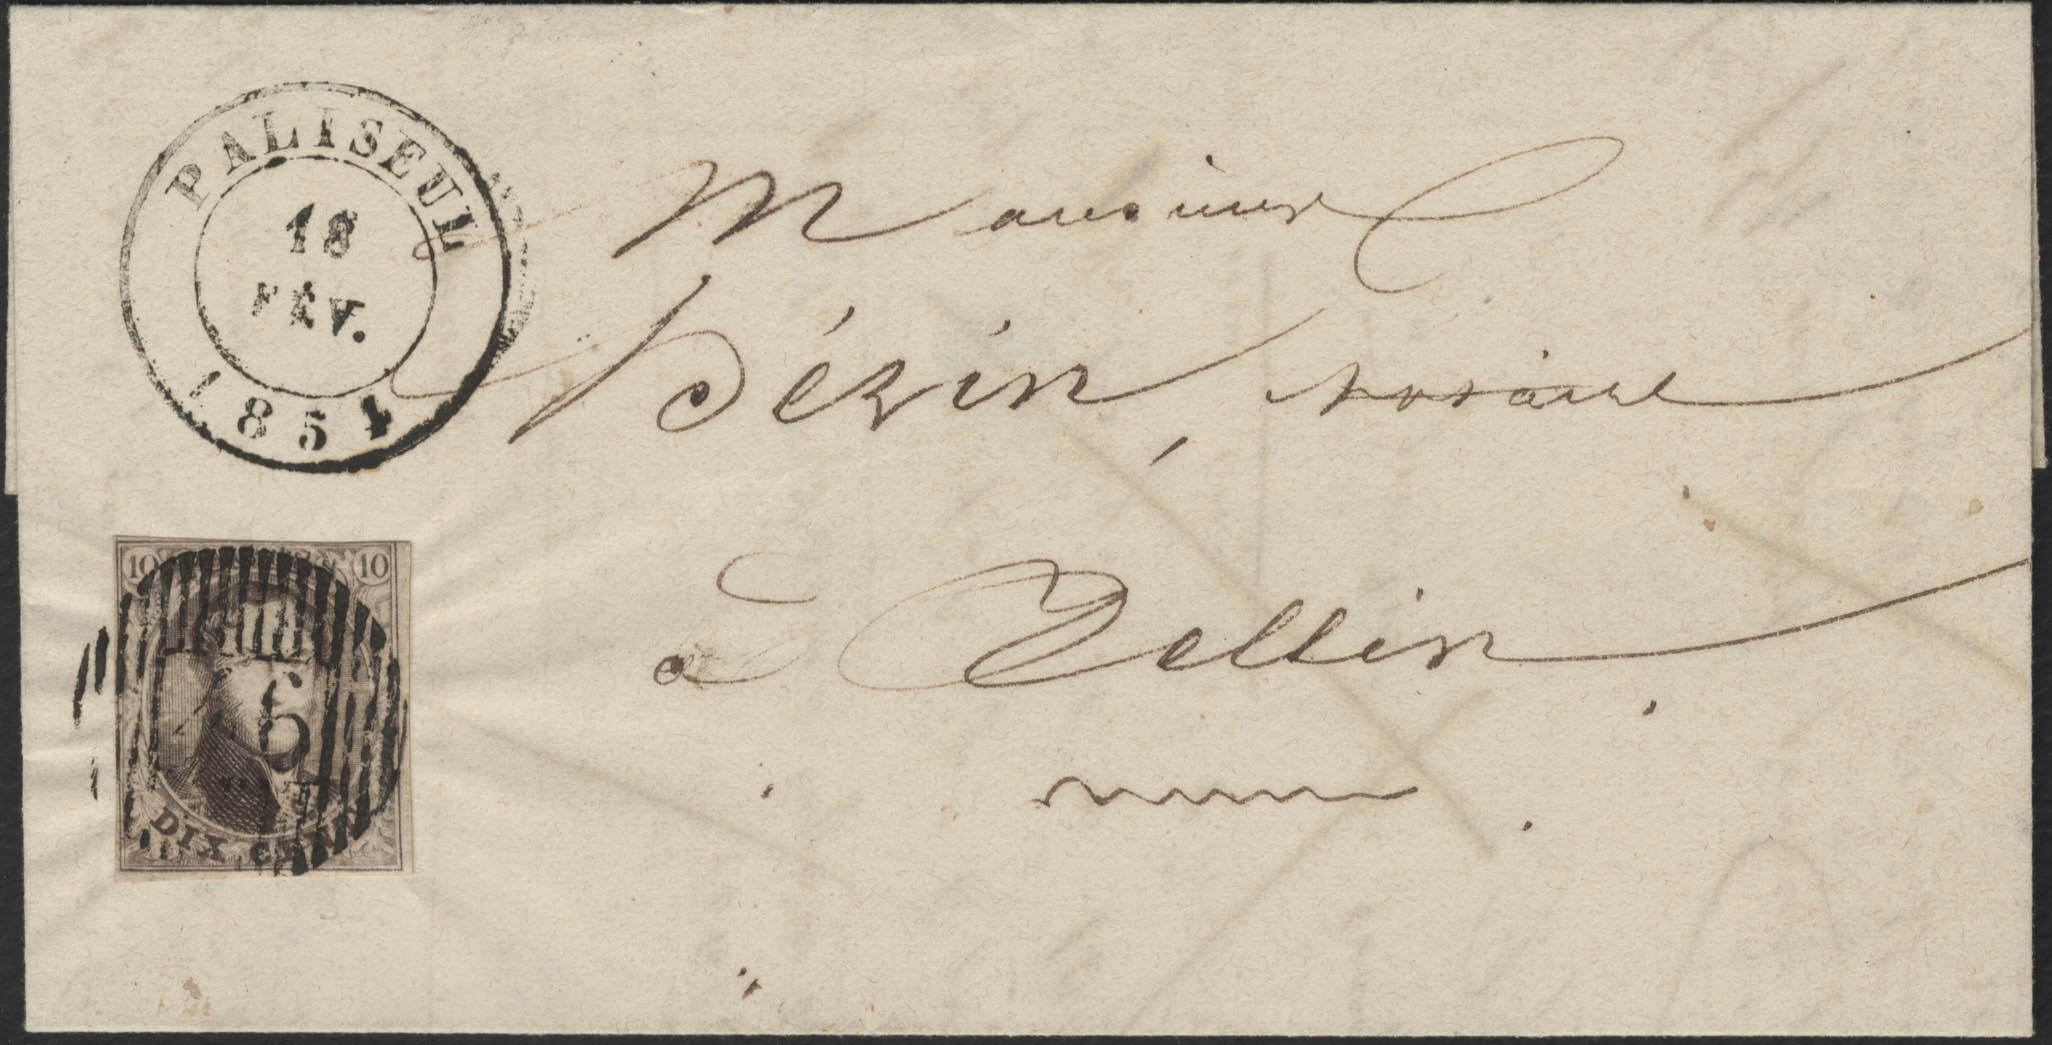 PALISEUL
18
FÉV.
1854
Monsieur
Dérin, notaire
à Tellin
10 10
6
DIX CEN